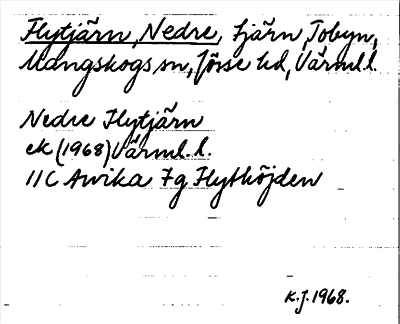 Flytjärn, Nedre, tjärn, Tobyn,
Mangskogs sn, Jösse hd, Värml.l.
Nedre Flytjärn
ek (1968) Värml.l.
11C Arvika 7g Flythöjden
K.J. 1968.